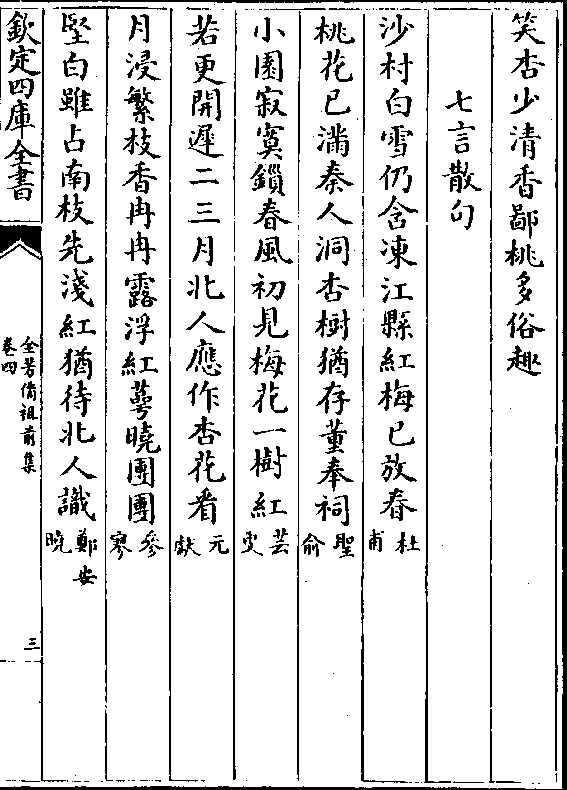 笑杏少清香鄙桃多俗趣
七言散句
沙村白雪仍含凍江縣紅梅已放春杜甫
桃花已滿秦人洞杏樹猶存董奉祠聖俞
小園寂寞鎖春風初見梅花一樹紅芸叟
若更開遲二三月北人應作杏花看元獻
月浸繁枝香冉冉露浮紅萼曉團團參寥
堅白雖占南枝先淺紅猶待北人識鄭安曉
欽定四庫全書
全芳備祖前集
卷四
三